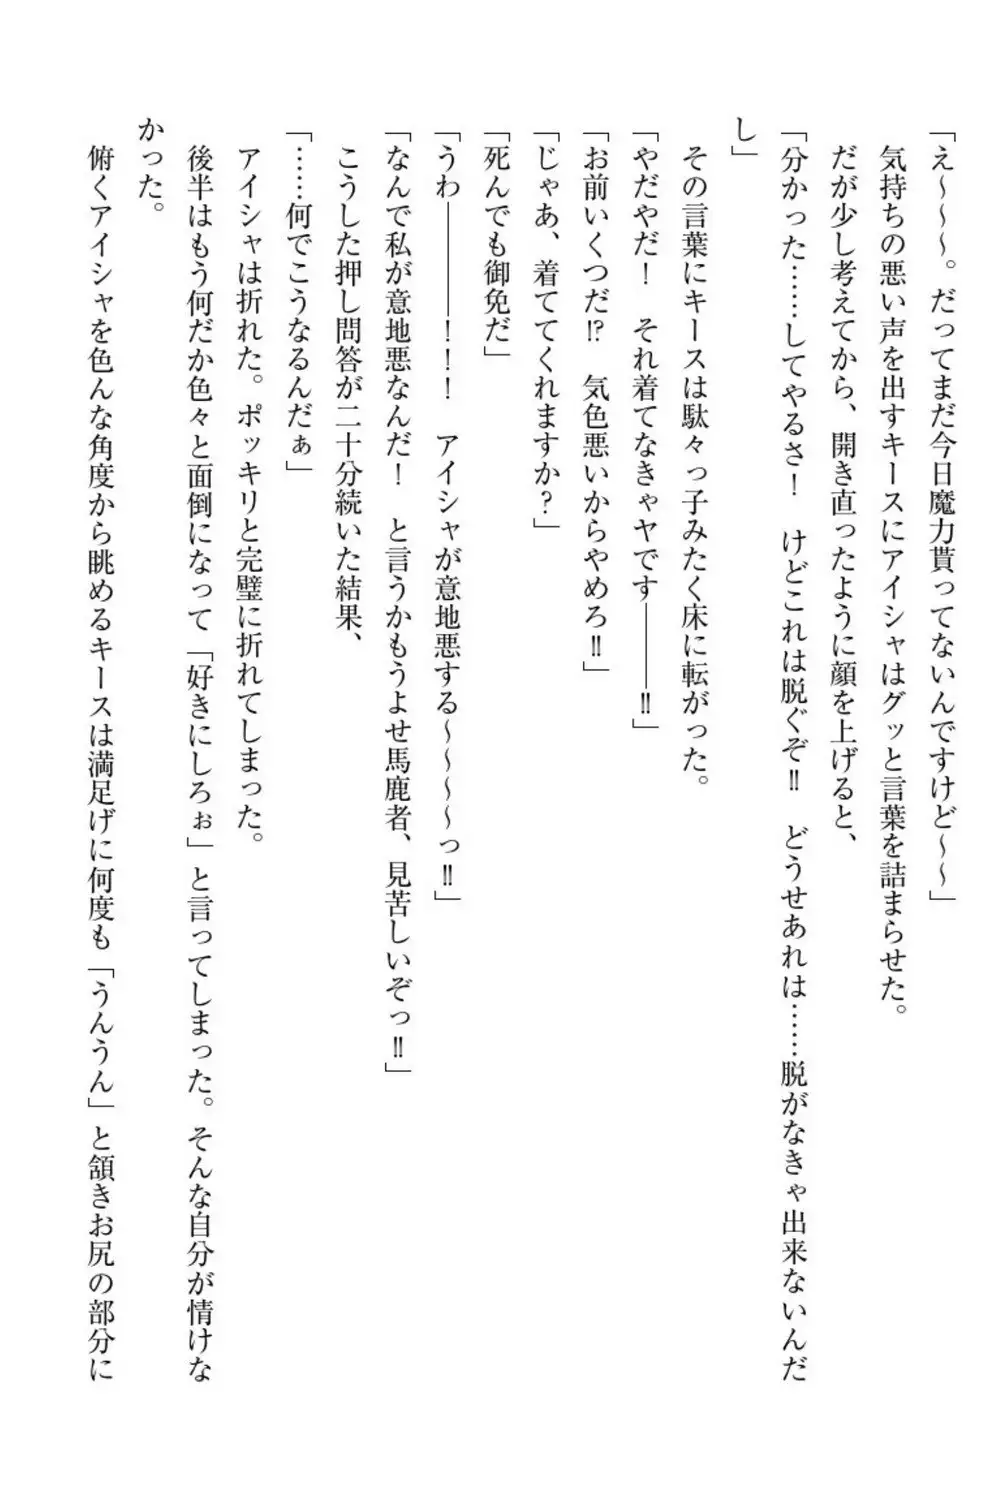 「え～～～。だってまだ今日魔力貰ってないんですけど～～」
　気持ちの悪い声を出すキースにアイシャはグッと言葉を詰まらせた。
　だが少し考えてから、開き直ったように顔を上げると、
「分かった……してやるさ！　けどこれは脱ぐぞ‼　どうせあれは……脱がなきゃ出来ないんだ
し」
　その言葉にキースは駄々っ子みたく床に転がった。
「やだやだ！　それ着てなきゃヤです――――‼」
「お前いくつだ⁉　気色悪いからやめろ‼」
「じゃあ、着ててくれますか？」
「死んでも御免だ」
「うわ――――！！！　アイシャが意地悪する～～～～っ‼」
「なんで私が意地悪なんだ！　と言うかもうよせ馬鹿者、見苦しいぞっ‼」
　こうした押し問答が二十分続いた結果、
「……何でこうなるんだぁ」
　アイシャは折れた。ポッキリと完璧に折れてしまった。
　後半はもう何だか色々と面倒になって「好きにしろぉ」と言ってしまった。そんな自分が情けな
かった。
　俯くアイシャを色んな角度から眺めるキースは満足げに何度も「うんうん」と頷きお尻の部分に